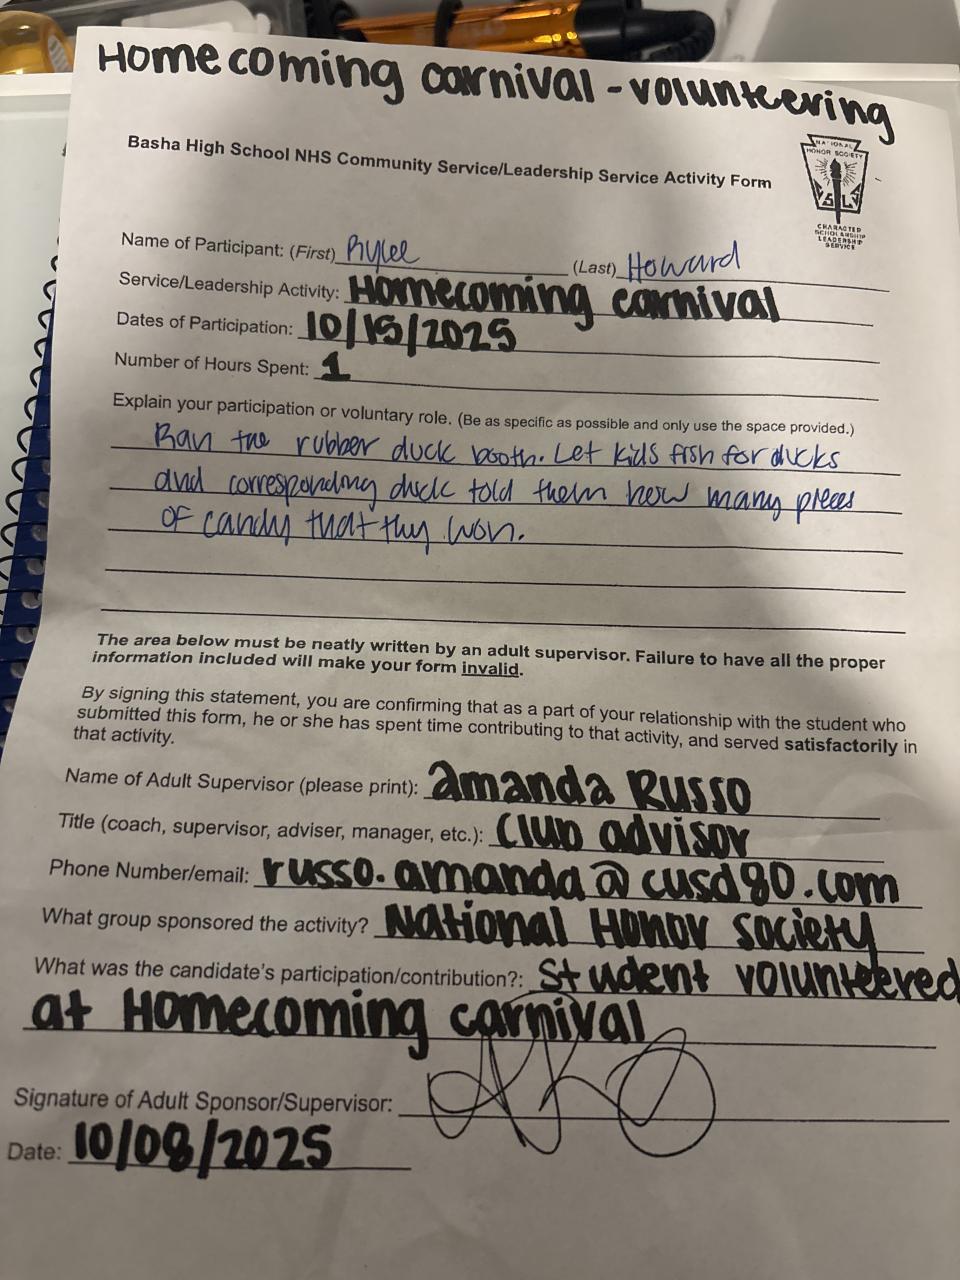 Homecoming carnival - volunteering
Basha High School NHS Community Service/Leadership Service Activity Form
NATIONAL
HONOR SOCIETY
CHARACTER
SCHOLARSHIP
LEADERSHIP
SERVICE
Name of Participant: (First) Rylee (Last) Howard
Service/Leadership Activity: Homecoming carnival
Dates of Participation: 10/15/2025
Number of Hours Spent: 1
Explain your participation or voluntary role. (Be as specific as possible and only use the space provided.)
Ran the rubber duck booth. Let kids fish for ducks
and corresponding duck told them how many pieces
of candy that thy won.
The area below must be neatly written by an adult supervisor. Failure to have all the proper
information included will make your form invalid.
By signing this statement, you are confirming that as a part of your relationship with the student who
submitted this form, he or she has spent time contributing to that activity, and served satisfactorily in
that activity.
Name of Adult Supervisor (please print): amanda Russo
Title (coach, supervisor, adviser, manager, etc.): Club advisor
Phone Number/email: russo.amanda@cusd80.com
What group sponsored the activity? National Honor Society
What was the candidate's participation/contribution?: Student volunteered
at Homecoming carnival
Signature of Adult Sponsor/Supervisor:
Date: 10/08/2025